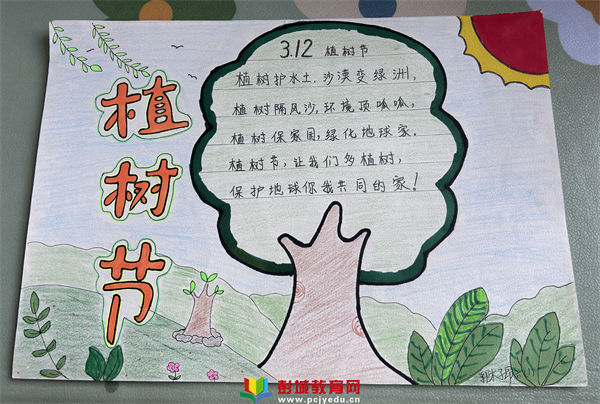 植树节
3.12 植树节
植树护水土,沙漠变绿洲,
植树隔风沙,环境顶呱呱,
植树保家国,绿化地球家.
植树节,让我们多植树,
保护地球你我共同的家!
彭城教育网
www.pcjyedu.cn